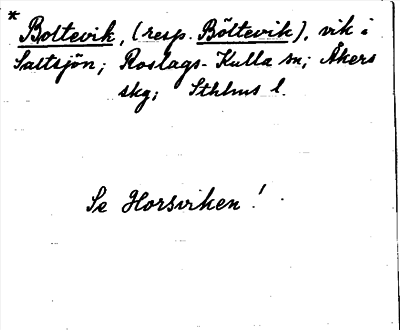 * Boltevik, (resp. Böltevik), vik i
Saltsjön; Roslags-Kulla sn; Åkers
skg; Sthlms l.
Se Horsviken!